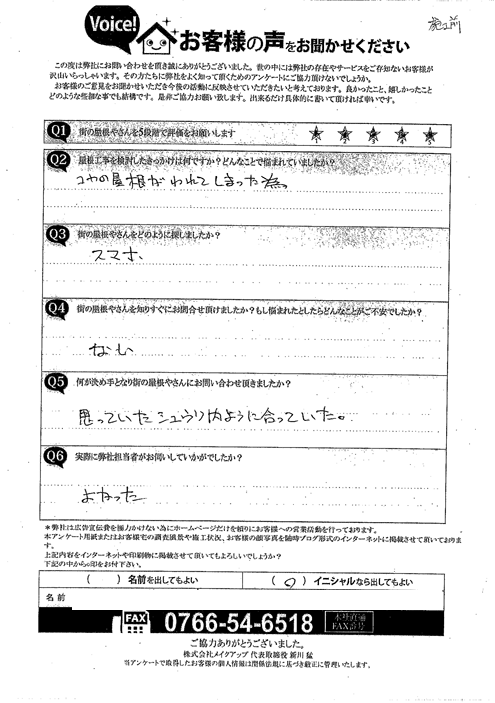 施工前
Voice!
お客様の声をお聞かせください
この度は弊社にお問い合わせを頂き誠にありがとうございました。世の中には弊社の存在やサービスをご存知ないお客様が
沢山いらっしゃいます。その方たちに弊社をよく知って頂くためのアンケートにご協力頂けないでしょうか。
お客様のご意見をお聞かせいただき今後の活動に反映させていただきたいと考えております。良かったこと、嬉しかったこと
どのような些細な事でも結構です。是非ご協力お願い致します。出来るだけ具体的に書いて頂ければ幸いです。
Q1 街の屋根やさんを5段階で評価をお願いします ★ ★ ★ ★ ★
Q2 屋根工事を検討したきっかけは何ですか?どんなことで悩まれていましたか?
コヤの屋根がわれてしまった為
Q3 街の屋根やさんをどのように探しましたか?
スマホ、
Q4 街の屋根やさんを知りすぐにお問合せ頂けましたか?もし悩まれたとしたらどんなことがご不安でしたか?
ない
Q5 何が決め手となり街の屋根やさんにお問い合わせ頂きましたか?
思っていたシュウリ内ように合っていた。
Q6 実際に弊社担当者がお伺いしていかがでしたか?
よかった
*弊社は広告宣伝費を極力かけない為にホームページだけを頼りにお客様への営業活動を行っております。
本アンケート用紙またはお客様宅の調査風景や施工状況、お客様の顔写真を随時ブログ形式のインターネットに掲載させて頂いておりま
す。
上記内容をインターネットや印刷物に掲載させて頂いてもよろしいでしょうか?
下記の中から○印をお付下さい。
( ) 名前を出してもよい ( ○ ) イニシャルなら出してもよい
名前
FAX 0766-54-6518 本社直通 FAX番号
ご協力ありがとうございました。
株式会社メイクアップ 代表取締役 新川 猛
当アンケートで取得したお客様の個人情報は関係法規に基づき厳正に管理いたします。